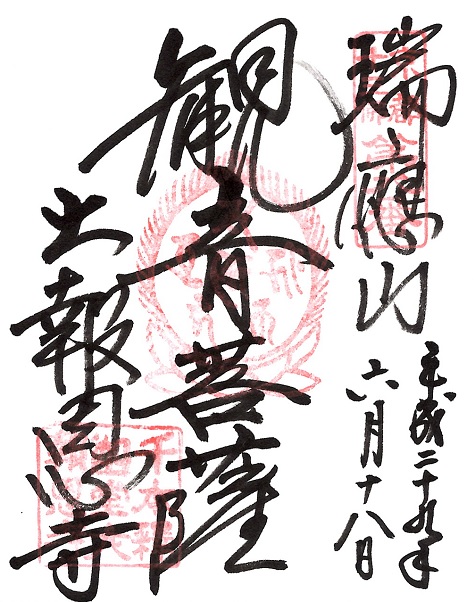 瑞應山
平成二十九年
六月十八日
観音菩薩
大報恩寺